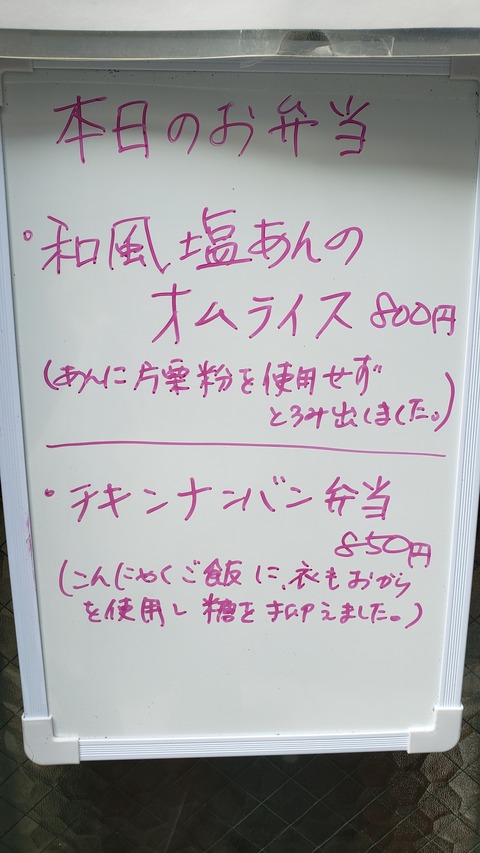 本日のお弁当
・和風塩あんの
オムライス 800円
(あんに片栗粉を使用せず
とろみ出しました。)
・チキンナンバン弁当
850円
(こんにゃくご飯に、衣もおから
を使用し糖を抑えました。)